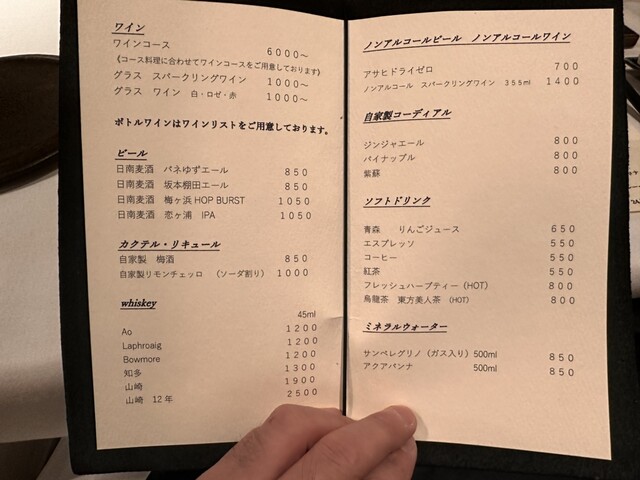 ワイン
ワインコース 6000～
《コース料理に合わせてワインコースをご用意しております》
グラス スパークリングワイン 1000～
グラス ワイン 白・ロゼ・赤 1000～
ボトルワインはワインリストをご用意しております。
ビール
日南麦酒 パネゆずエール 850
日南麦酒 坂本棚田エール 850
日南麦酒 梅ヶ浜 HOP BURST 1050
日南麦酒 恋ヶ浦 IPA 1050
カクテル・リキュール
自家製 梅酒 850
自家製リモンチェッロ （ソーダ割り） 1000
whiskey
45ml
Ao 1200
Laphroaig 1200
Bowmore 1200
知多 1300
山崎 1900
山崎 12年 2500
ノンアルコールビール ノンアルコールワイン
アサヒドライゼロ 700
ノンアルコール スパークリングワイン 355ml 1400
自家製コーディアル
ジンジャエール 800
パイナップル 800
紫蘇 800
ソフトドリンク
青森 りんごジュース 650
エスプレッソ 550
コーヒー 550
紅茶 550
フレッシュハーブティー（HOT） 800
烏龍茶 東方美人茶 （HOT） 800
ミネラルウォーター
サンペレグリノ（ガス入り）500ml 850
アクアパンナ 500ml 850